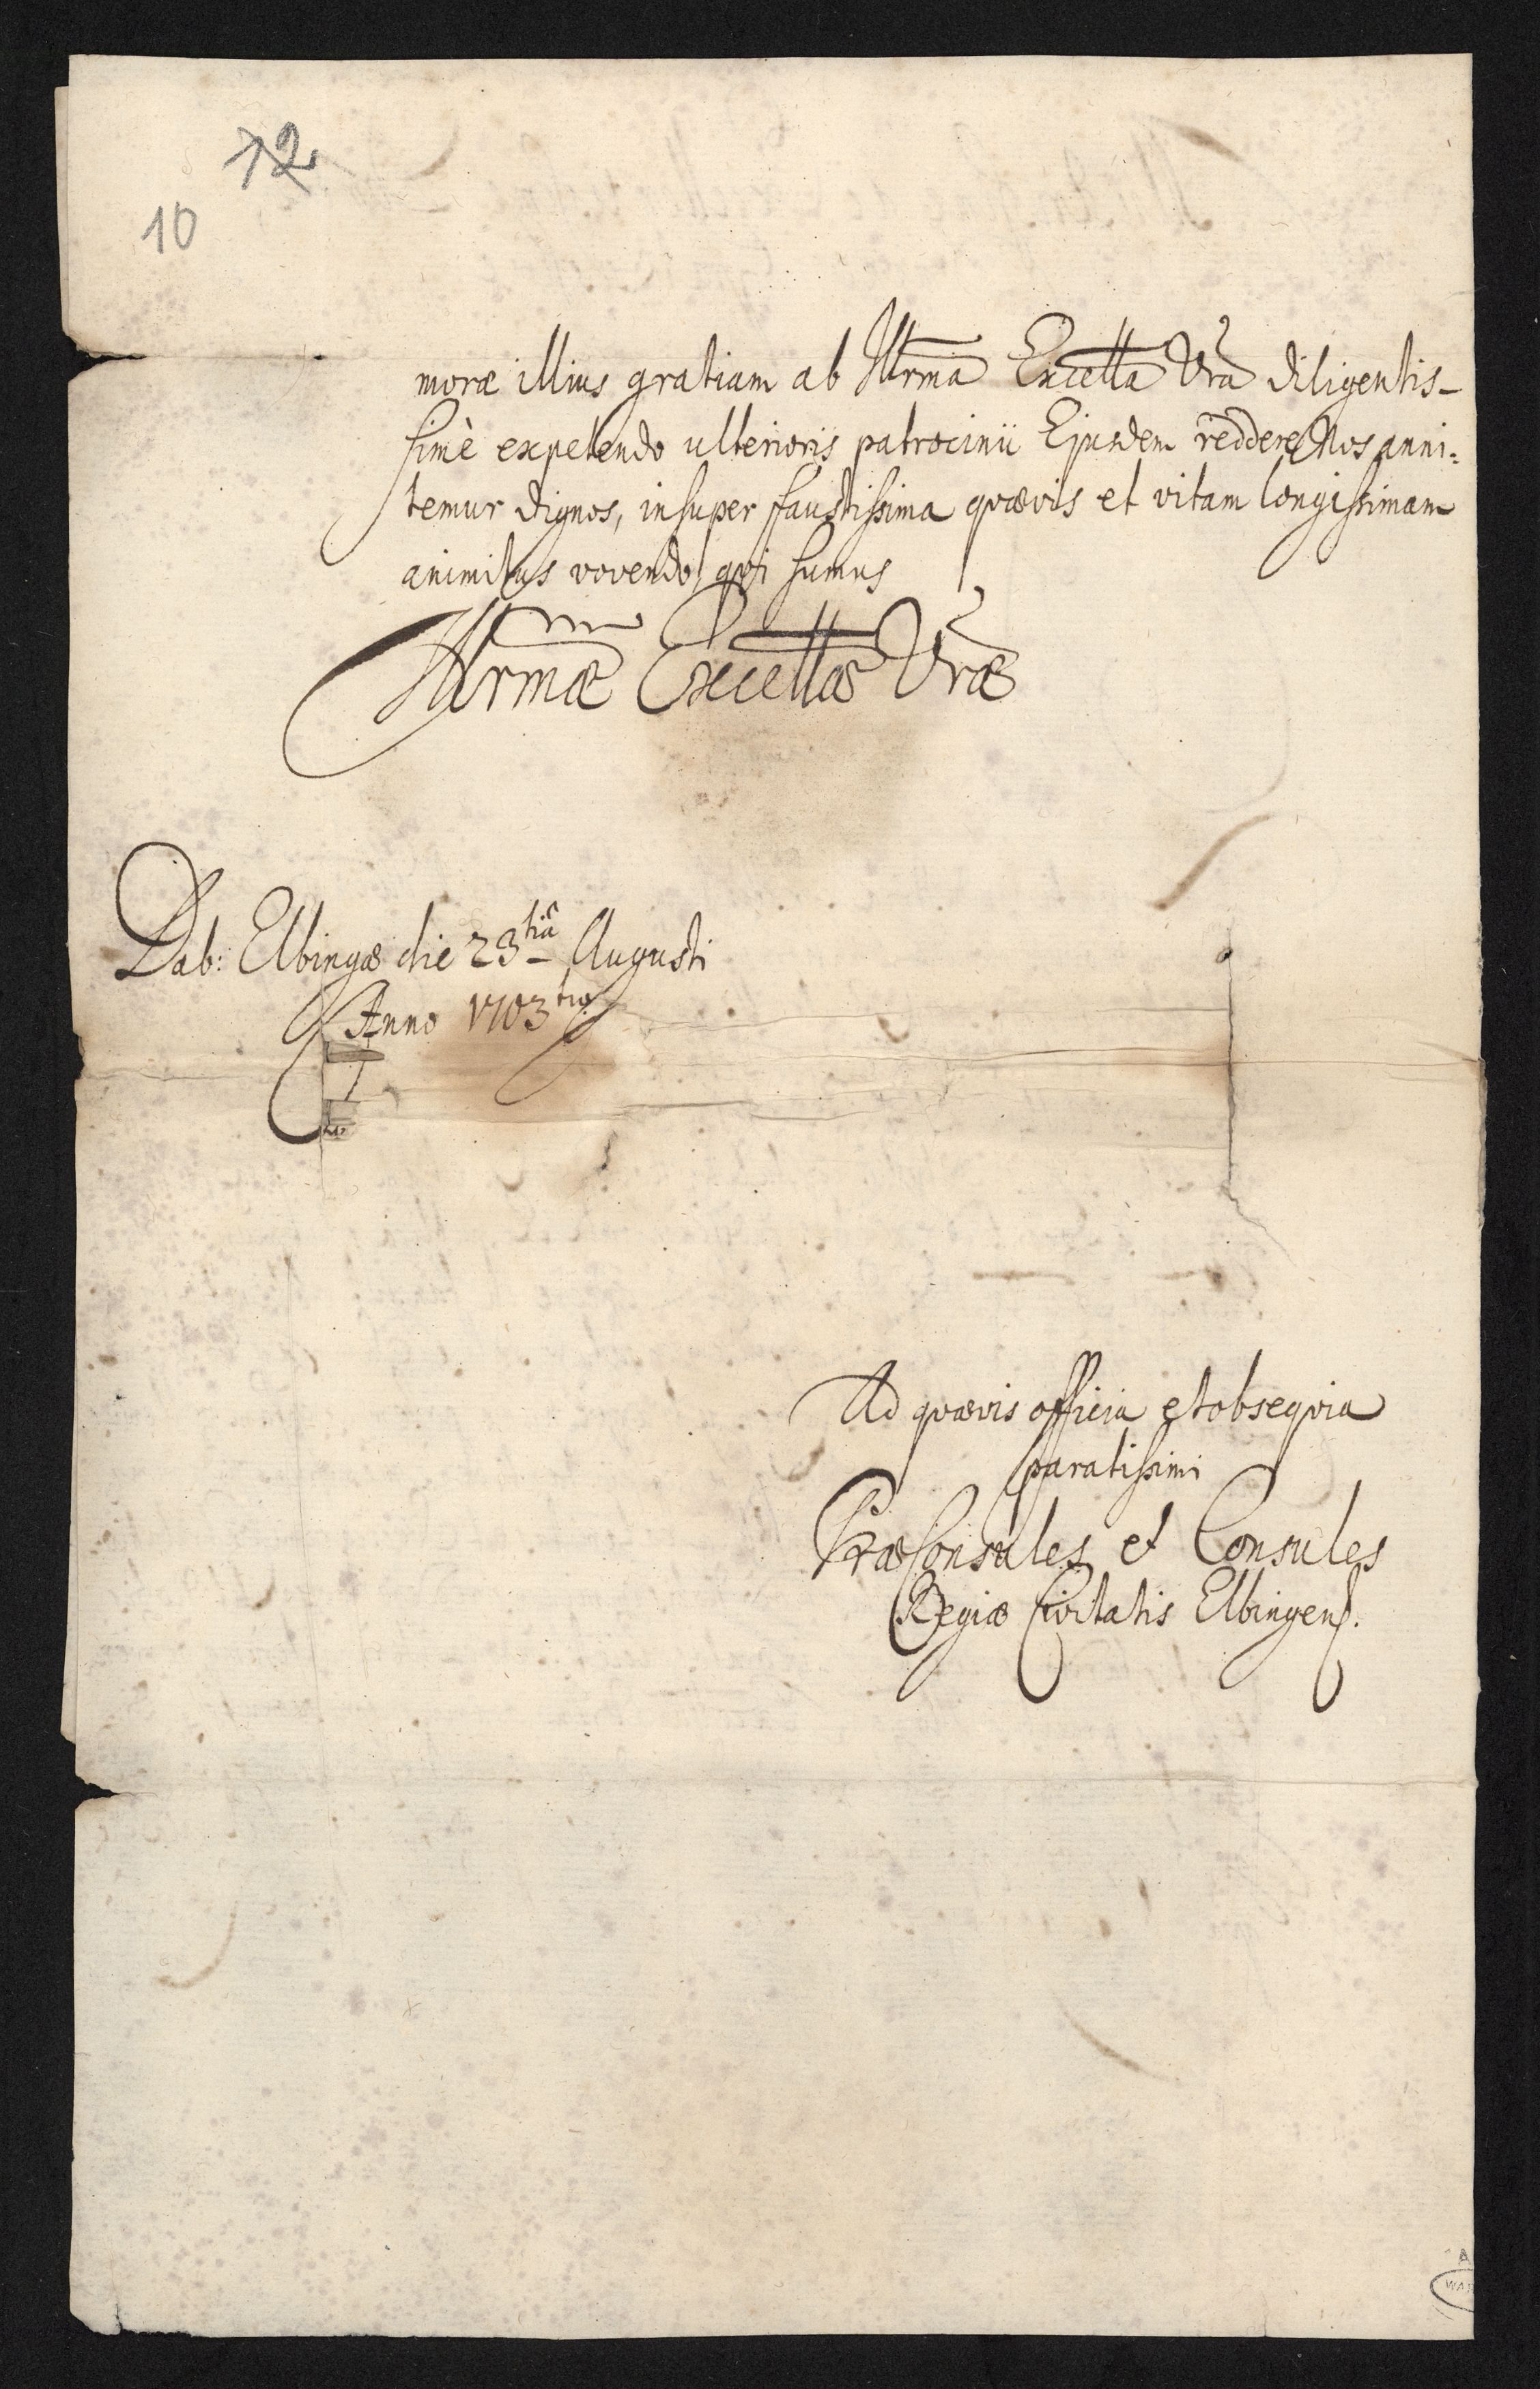 12
10
moræ illius gratiam ab Illrma Excella Vra diligentis-
simè expetendo ulterioris patrocinii Ejusdem reddere Nos anni=
temur dignos, insuper faustissima quævis et vitam longissimam
animitus vovendo, qui sumus
Illrmæ Excellæ Vræ
Dab: Elbingæ die 23tiâ Augusti
Anno 1703tio
Ad quævis officia et obsequia
paratissimi
PræConsules et Consules
Regiæ Civitatis Elbingens.
A
WAR